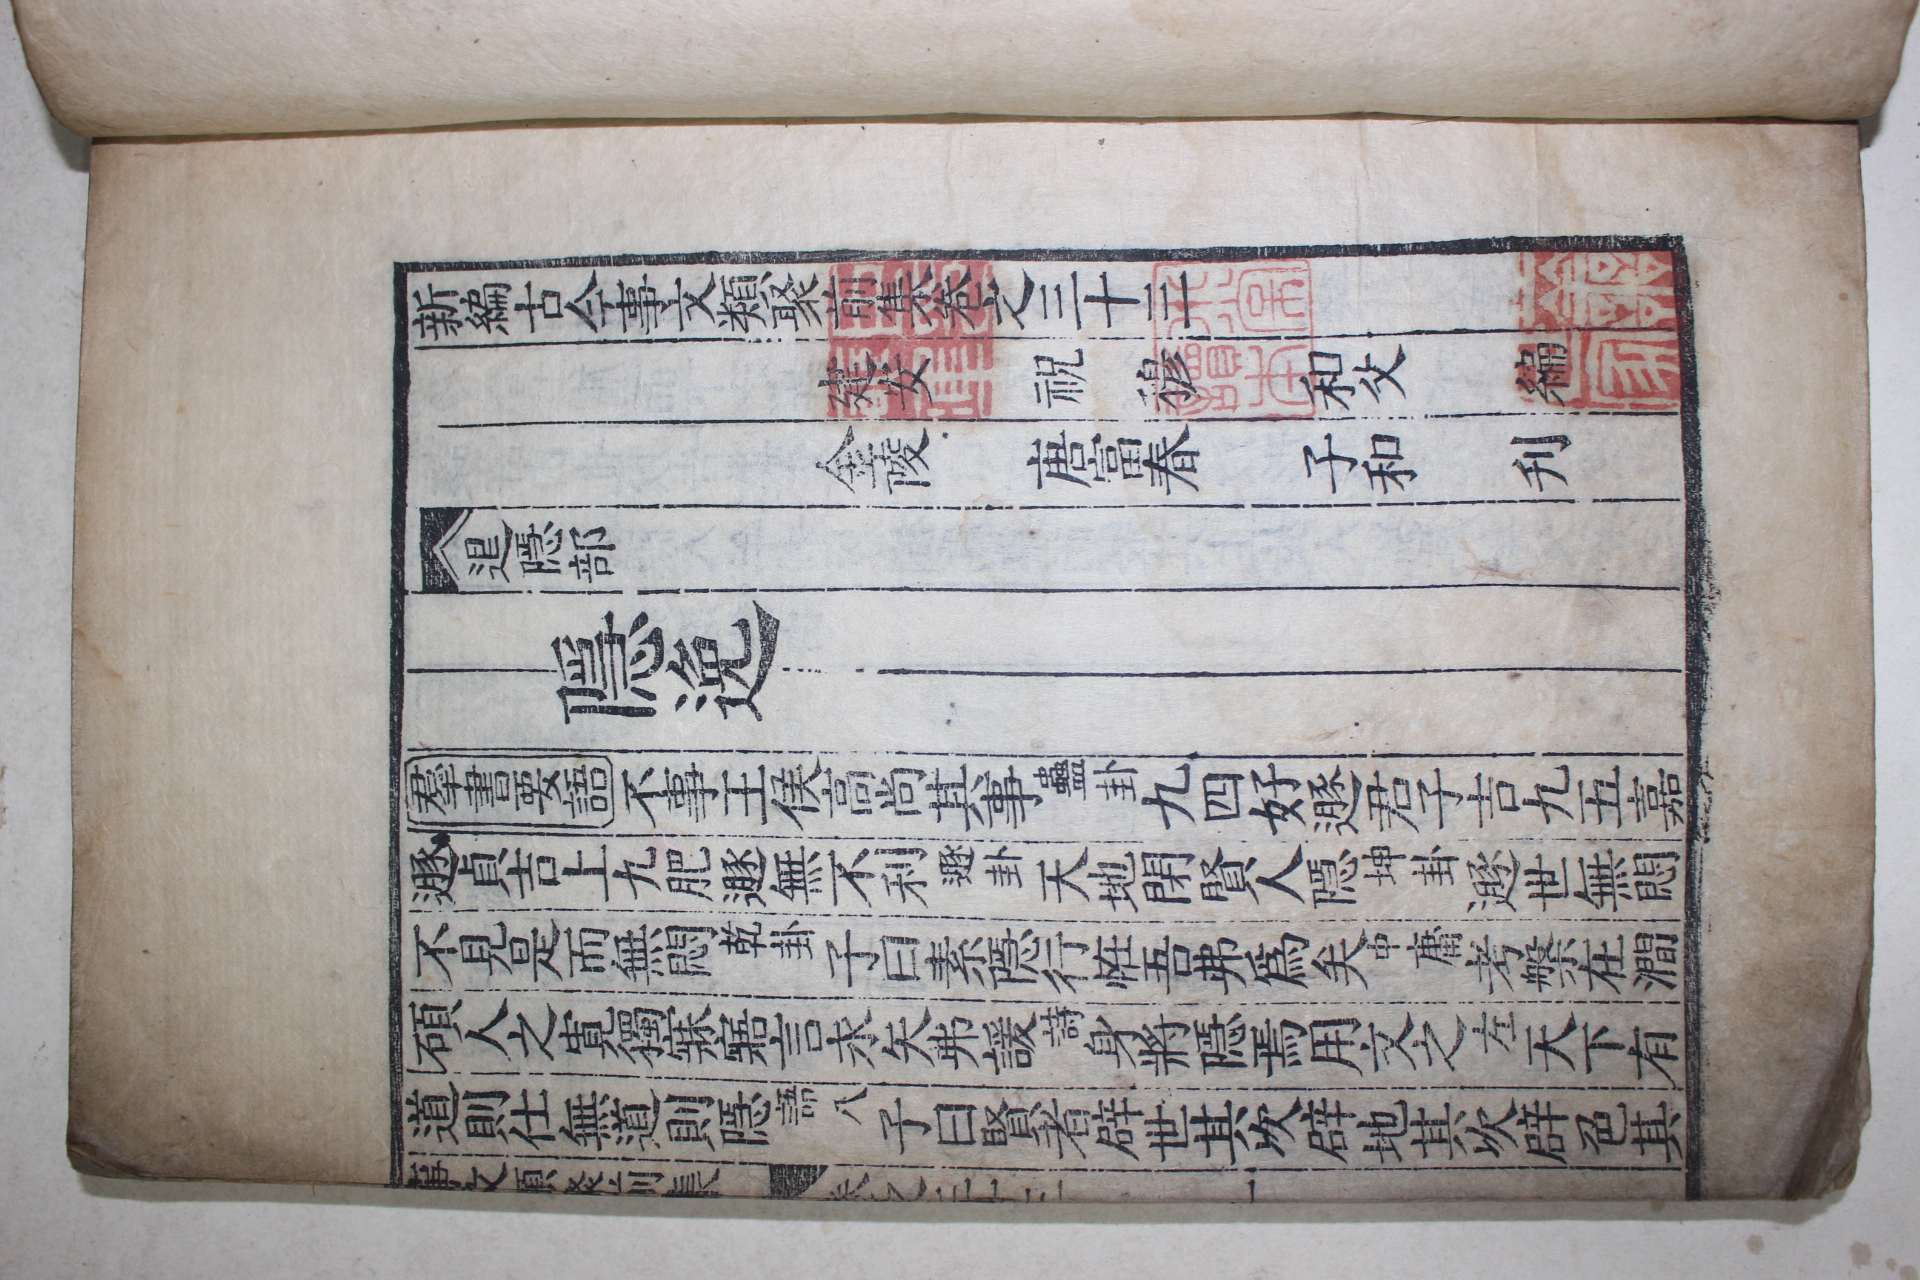 新編古今事文類聚前集卷之三十二
建安 祝 穆 和父 編
金陵 唐富春 子和 刋
退隱部
隱逸
羣書要語 不事王侯高尚其事蠱卦九四好遯君子吉九五嘉
遯貞吉上九肥遯無不利遯卦天地閉賢人隱坤卦遯世無悶
不見是而無悶乾卦子曰素隱行恠吾弗爲矣中庸考槃在澗
碩人之寬獨寐寤言永矢弗諼詩身將隱焉用文之左天下有
道則仕無道則隱語八子曰賢者辟世其次辟地其次辟色其
事文類聚前集 卷之三十二 一